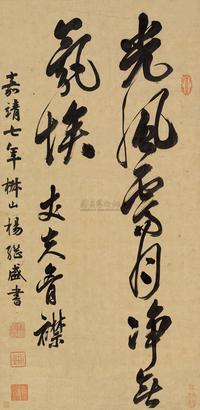 光風霽月净無
氛埃丈夫胷襟
嘉靖七年椒山楊繼盛書